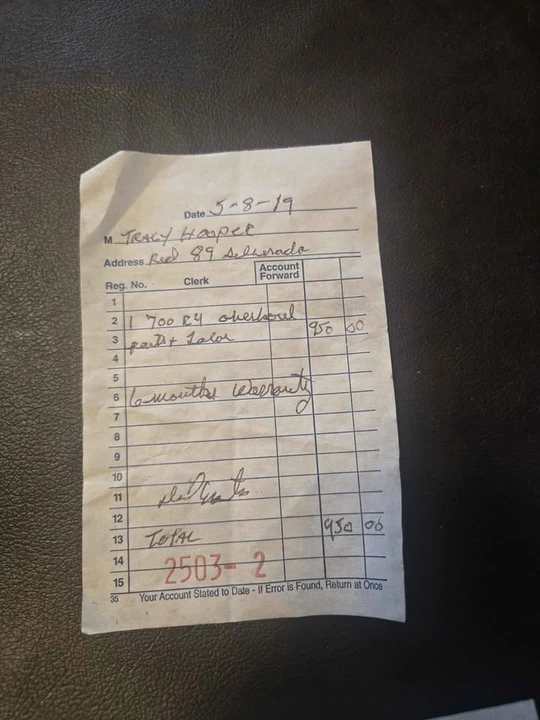 Date 5-8-19
M Tracy Hooper
Address Red 89 Silverado
Reg. No. Clerk Account Forward
1
2 1 700 R4 overhaul
3 parts + Labor 950 00
4
5
6 6-months Warranty
7
8
9
10
11
12
13 TOTAL 950 00
14
15 2503-2
35 Your Account Stated to Date - If Error is Found, Return at Once